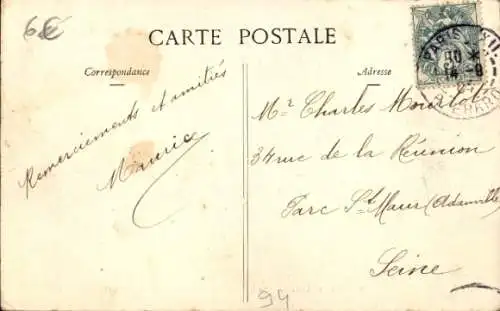 6€
CARTE POSTALE
Correspondance
Adresse
Remerciements et amitiés
Mauric
PARIS
10
14-8
Mr Charles
34 rue de la Réunion
Parc St Maur (Adamville)
Seine
94